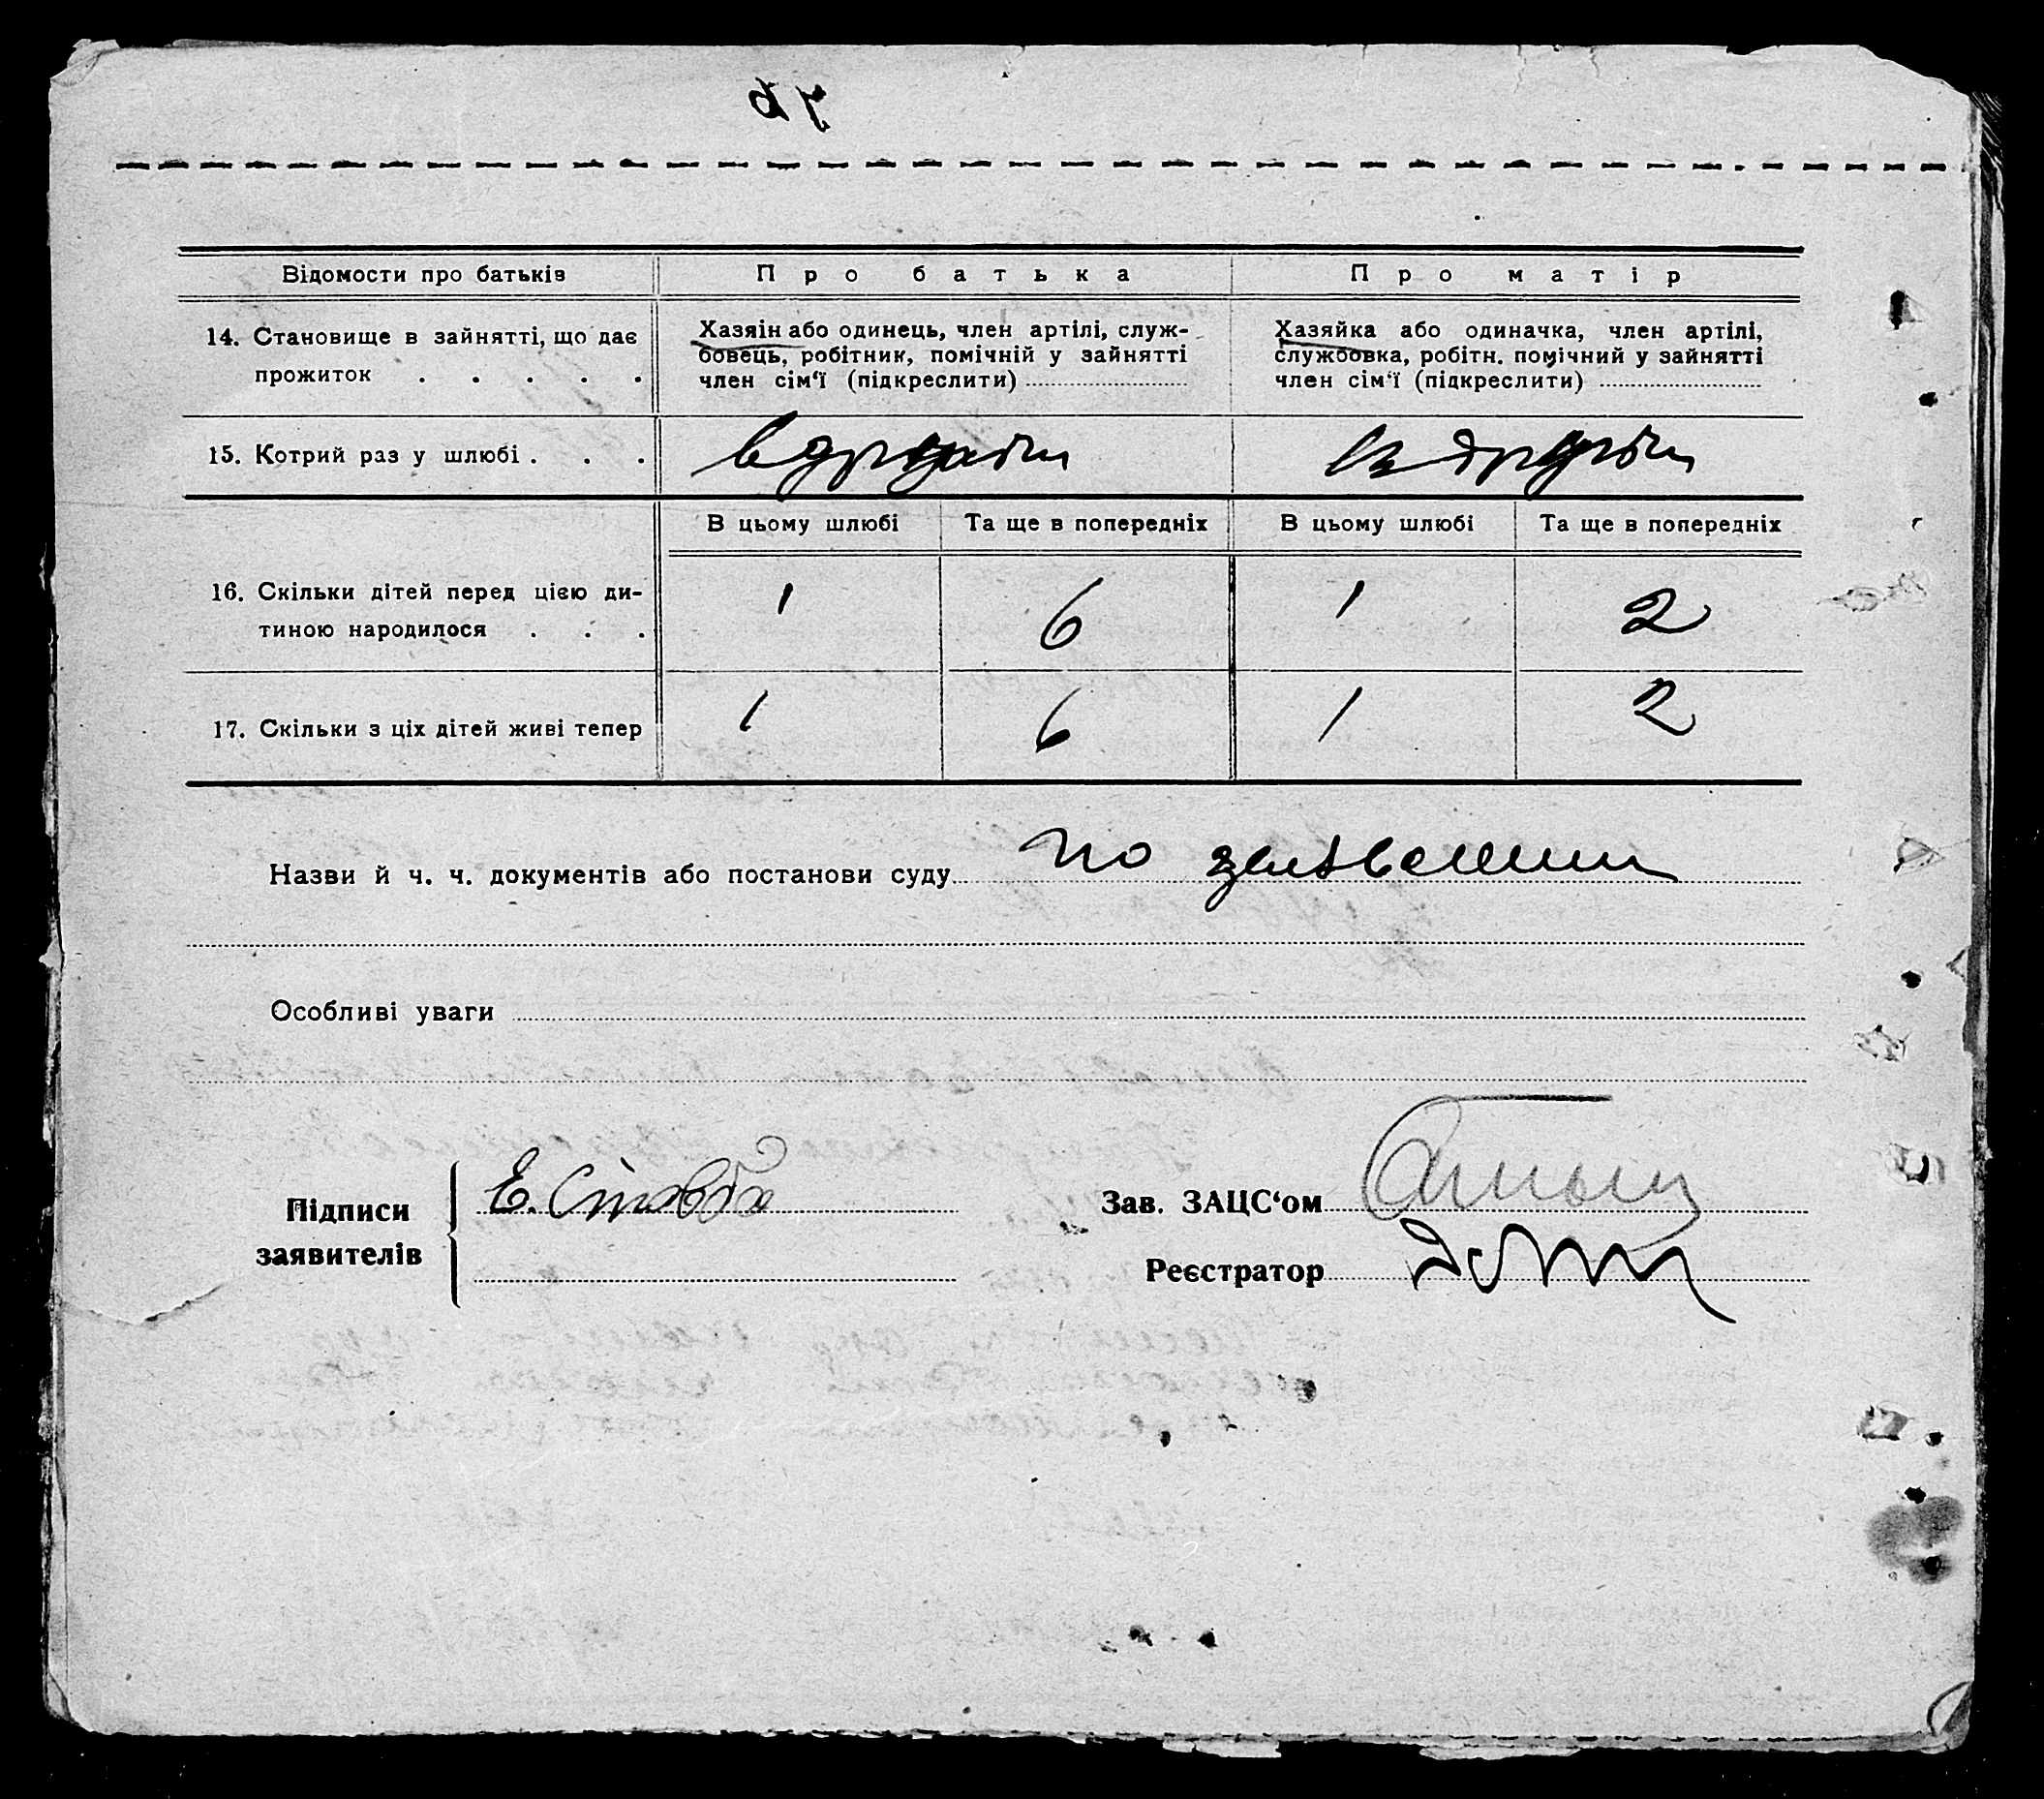 Відомости про батьків Про батька Про матір
14. Становище в зайнятті, що дає прожиток . . . . .
Хазяїн або одинець, член артілі, служ-
бовець, робітник, помічній у зайнятті
член сім‘ї (підкреслити)
Хазяйка або одиначка, член артілі,
службовка, робітн. помічний у зайнятті
член сім‘ї (підкреслити)
15. Котрий раз у шлюбі . . .
В цьому шлюбі Та ще в попередніх В цьому шлюбі Та ще в попередніх
16. Скільки дітей перед цією ди-
тиною народилося . . . 1 6 1 2
17. Скільки з ціх дітей живі тепер 1 6 1 2
Назви й ч. ч. документів або постанови суду по
Особливі уваги
Підписи
заявителів
Е.
Зав. ЗАЦС‘ом
Реєстратор